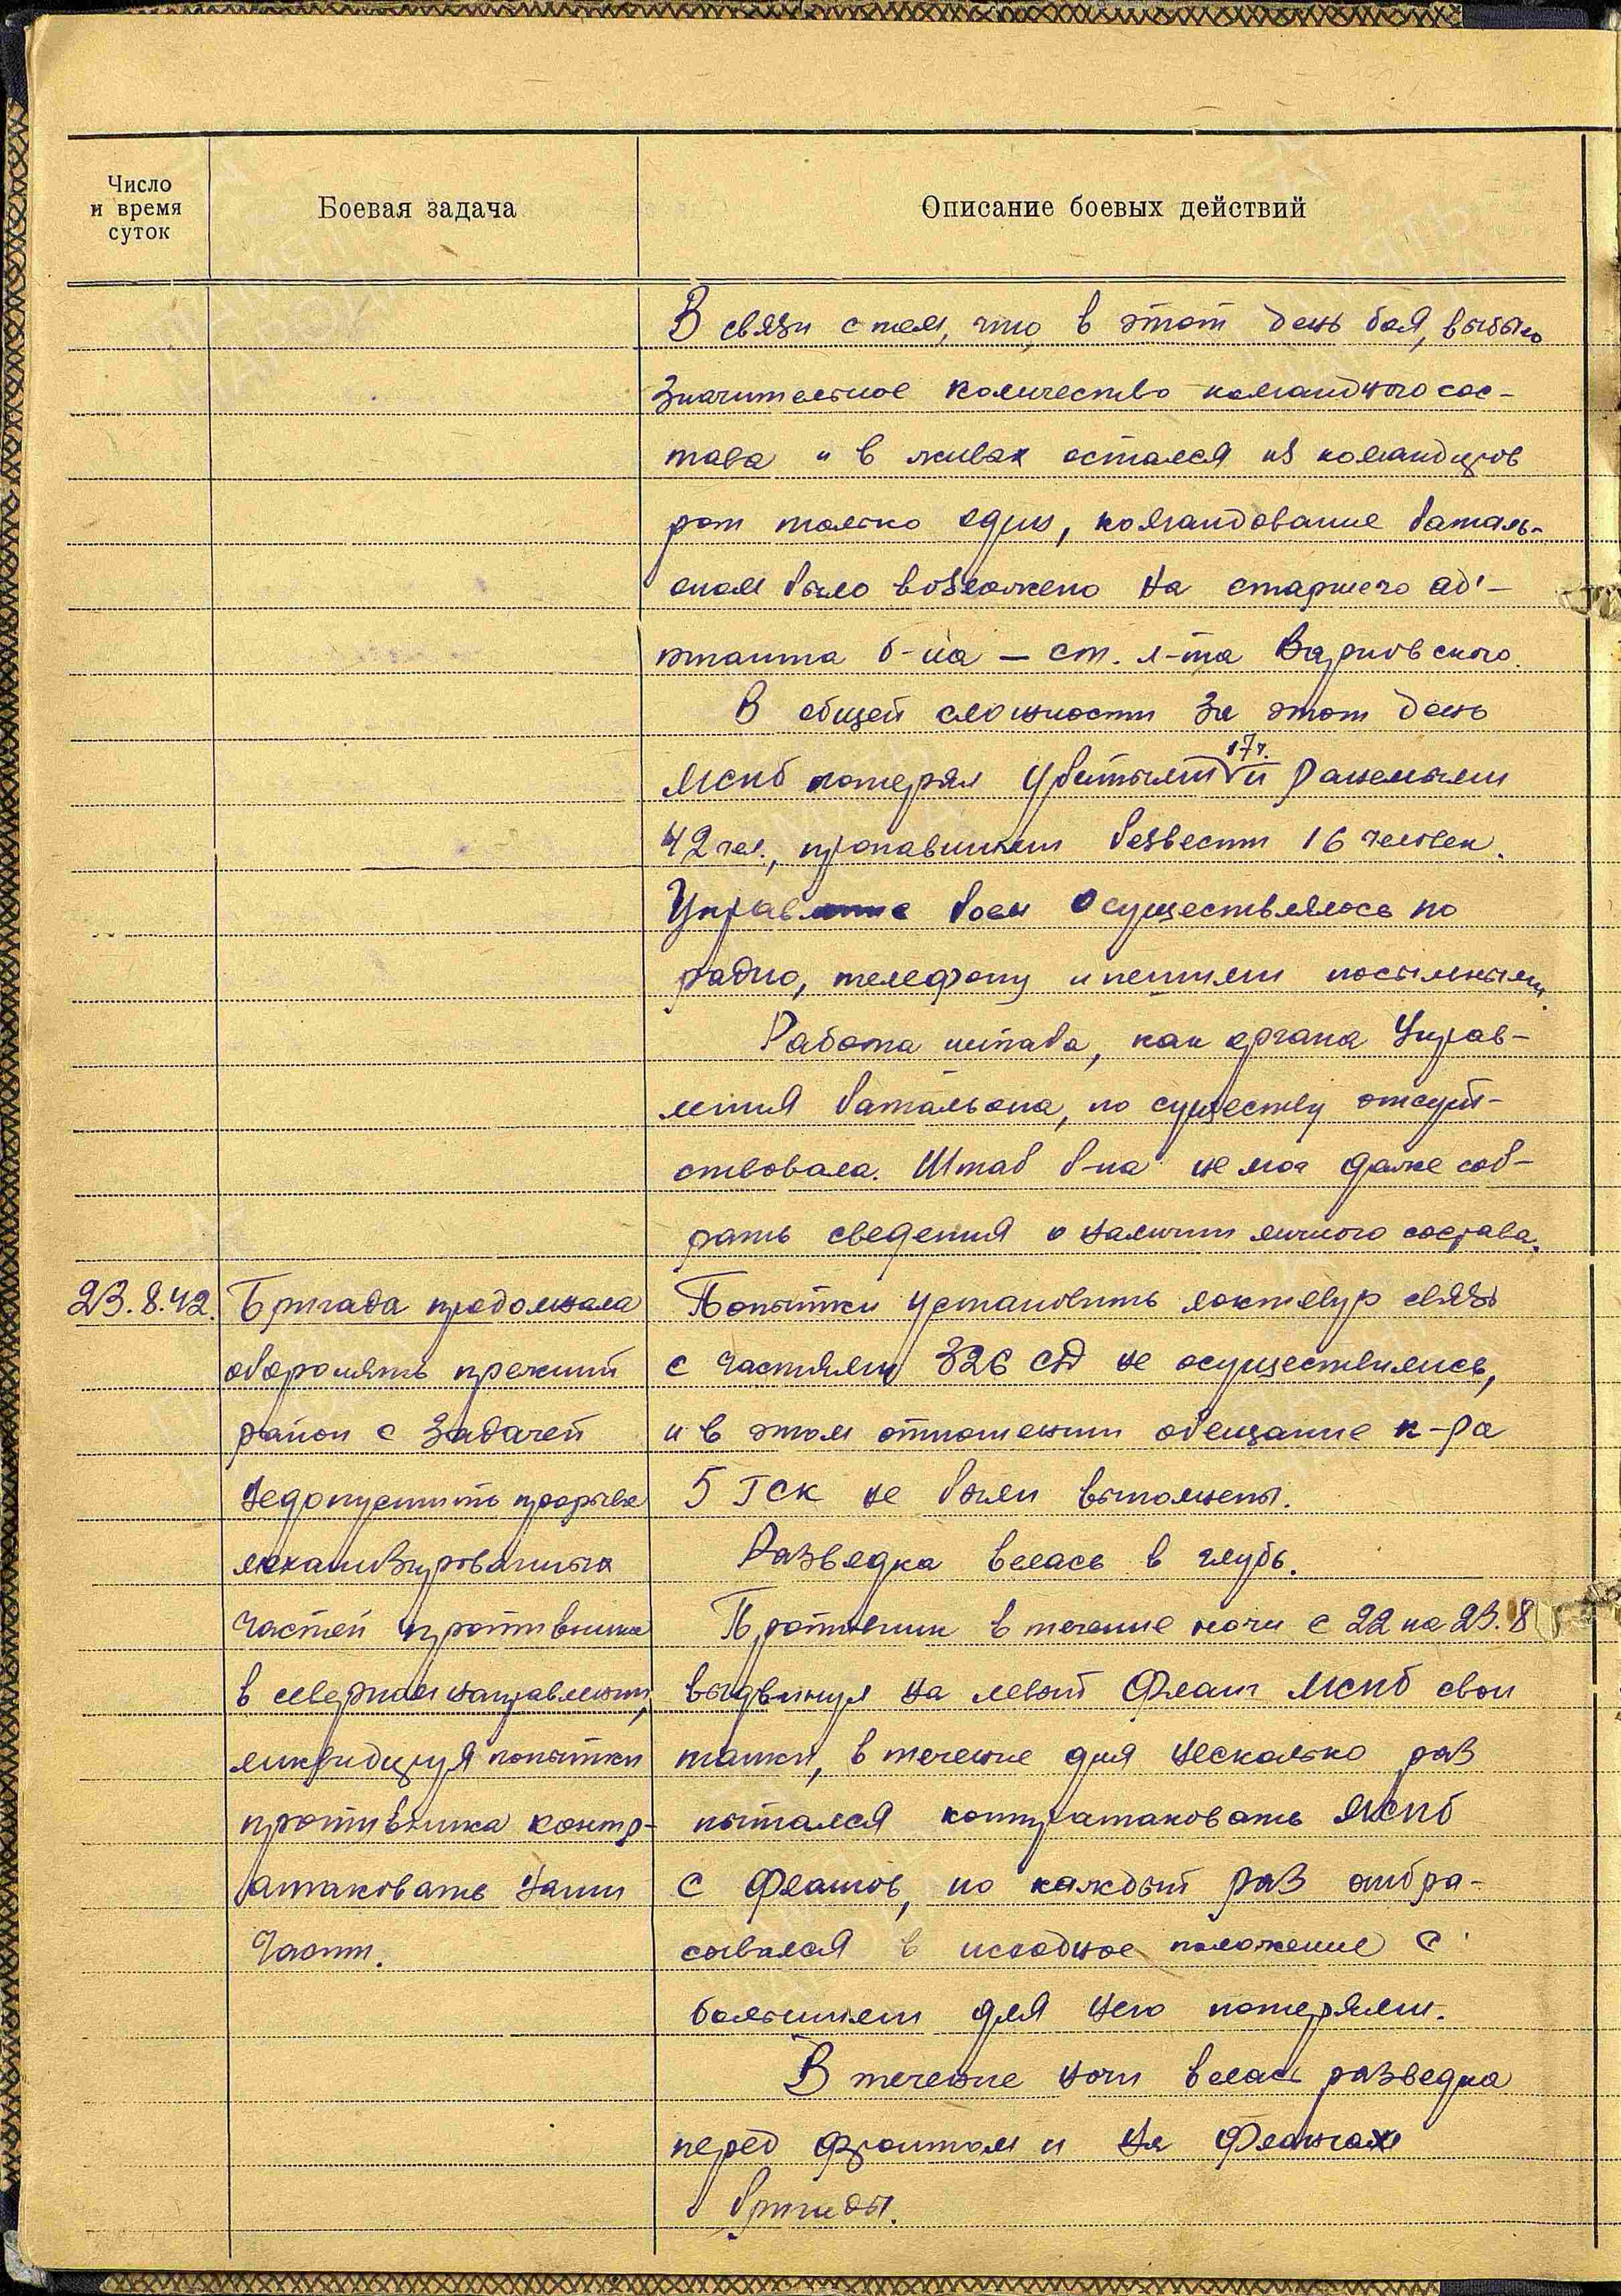 Число
и время
суток
Боевая задача
Описание боевых действий
В связи с тем, что, в этот день боя, выбыло
значительное количество командного сос-
тава и в живых остался из командиров
рот только один, командование баталь-
оном было возложено на старшего ад'-
ютанта б-на – ст. л-та Варновского.
В общей сложности за этот день
МСПБ потерял убитыми 17ч. и ранеными
42 чел., пропавшими безвести 16 человек.
Управление боем осуществлялось по
радио, телефону и пешими посыльными.
Работа штаба, как органа управ-
ления батальона, по существу отсут-
ствовала. Штаб б-на не мог даже соб-
рать сведения о наличии личного состава.
23.8.42.
Бригада продолжала
оборонять прежний
район с задачей
недопустить прорыва
механизированных
частей противника
в северном направлении,
ликвидируя попытки
противника контр-
атаковать наши
части.
Попытки установить локтевую связь
с частями 326 СД не осуществились,
и в этом отношении обещание к-ра
5 ГСК не были выполнены.
Разведка велась в глубь.
Противник в течение ночи с 22 на 23.8
выдвинул на левый фланг МСПБ свои
танки, в течение дня несколько раз
пытался контратаковать МСПБ
с флангов, но каждый раз отбра-
сывался в исходное положение с
большими для него потерями.
В течение ночи велась разведка
перед фронтом и на флангах
бригады.